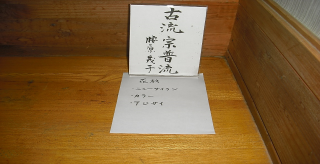 古流宗普流
花材
・ニューサイラン
・カラー
・アジサイ